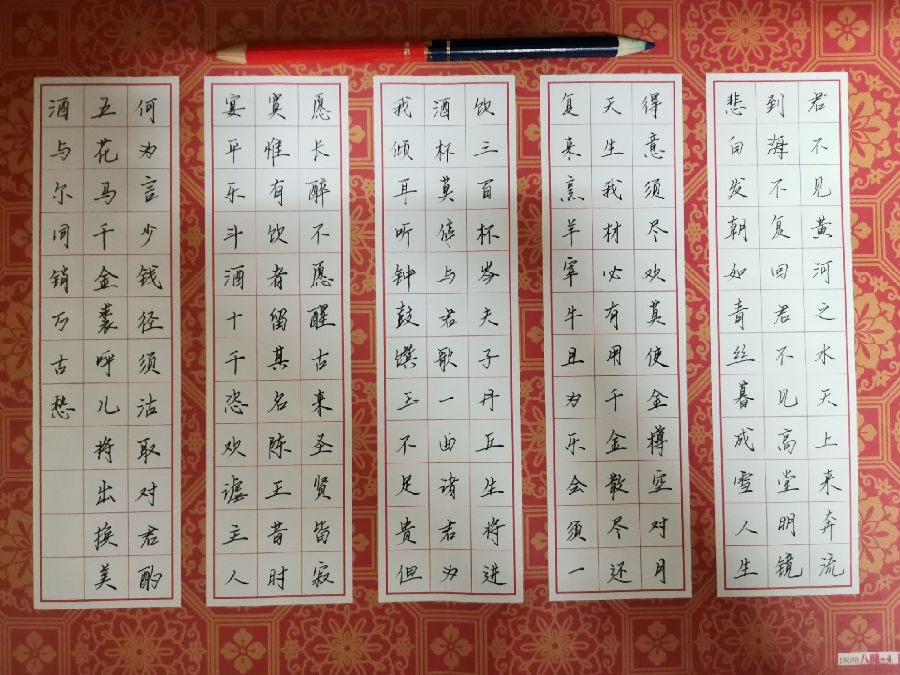 君不见黄河之水天上来奔流
到海不复回君不见高堂明镜
悲白发朝如青丝暮成雪人生
得意须尽欢莫使金樽空对月
天生我材必有用千金散尽还
复来烹羊宰牛且为乐会须一
饮三百杯岑夫子丹丘生将进
酒杯莫停与君歌一曲诸君为
我倾耳听钟鼓馔玉不足贵但
愿长醉不愿醒古来圣贤皆寂
寞惟有饮者留其名陈王昔时
宴平乐斗酒十千恣欢谑主人
何为言少钱径须沽取对君酌
五花马千金裘呼儿将出换美
酒与尔同销万古愁